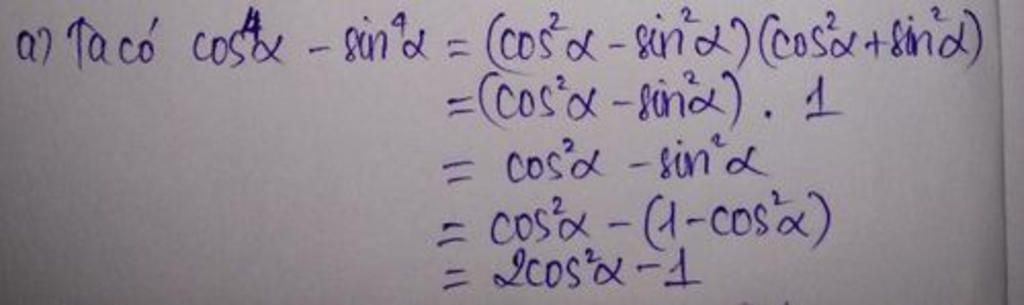 a) Ta có cos⁴α - sin⁴α = (cos²α - sin²α)(cos²α + sin²α)
= (cos²α - sin²α) . 1
= cos²α - sin²α
= cos²α - (1 - cos²α)
= 2cos²α - 1